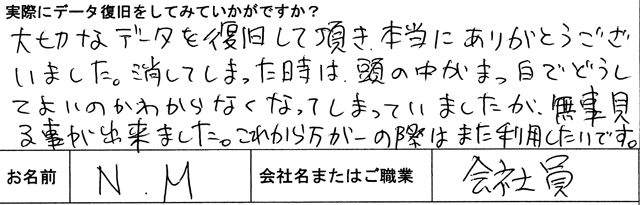 実際にデータ復旧をしてみていかがですか？
大切なデータを復旧して頂き、本当にありがとうござ
いました。消してしまった時は、頭の中がまっ白でどうし
てよいのかわからなくなってしまっていましたが、無事見
る事が出来ました。これから万が一の際はまた利用したいです。
お名前 N.M 会社名またはご職業 会社員